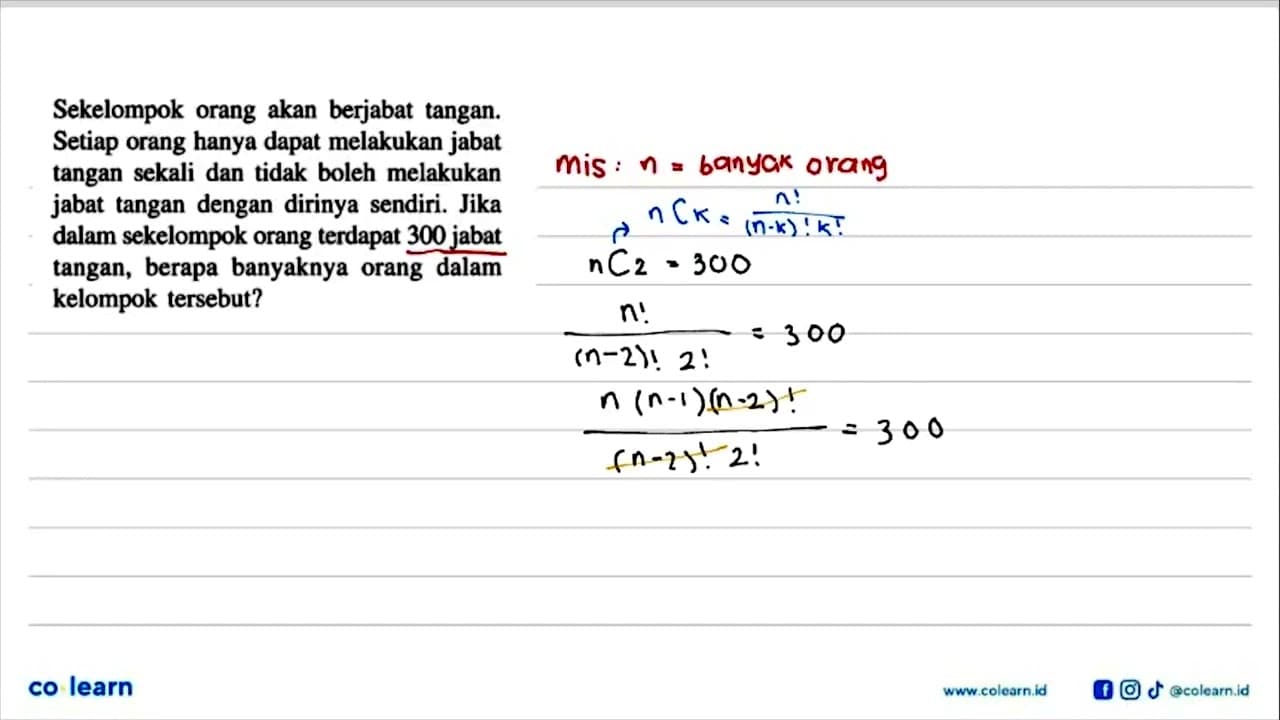 Sekelompok orang akan berjabat tangan.
Setiap orang hanya dapat melakukan jabat
tangan sekali dan tidak boleh melakukan
jabat tangan dengan dirinya sendiri. Jika
dalam sekelompok orang terdapat 300 jabat
tangan, berapa banyaknya orang dalam
kelompok tersebut?
mis: n = banyak orang
nCk = n! / (n-k)! k!
nC2 = 300
n! / (n-2)! 2! = 300
n (n-1)(n-2)! / (n-2)! 2! = 300
co learn
www.colearn.id
@colearn.id